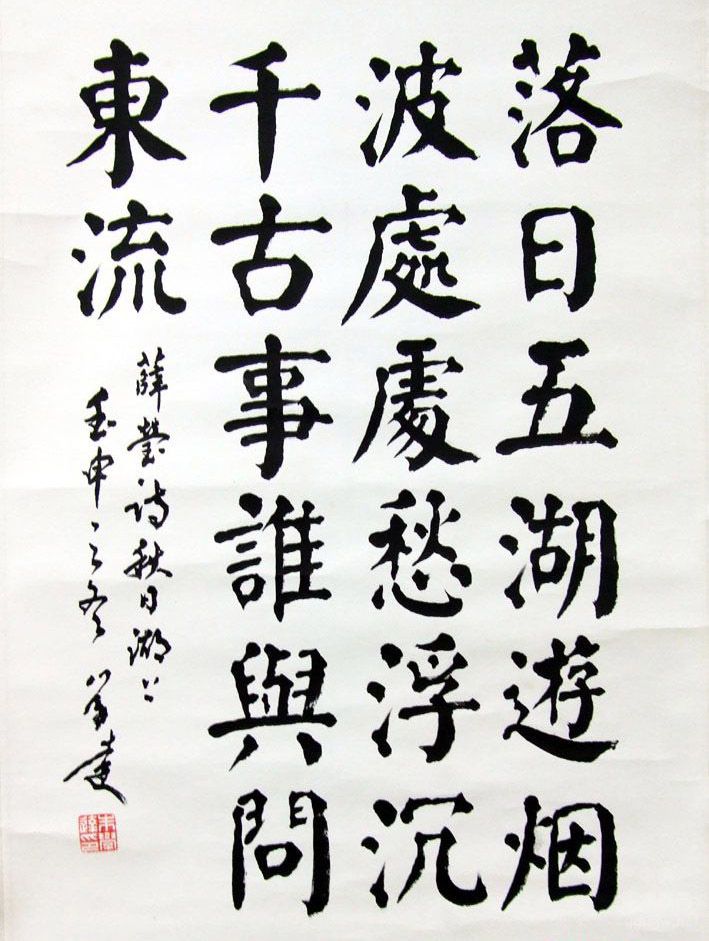 落日五湖遊烟
波處處愁浮沉
千古事誰與問
東流
薛瑩詩秋日湖上
壬申之冬